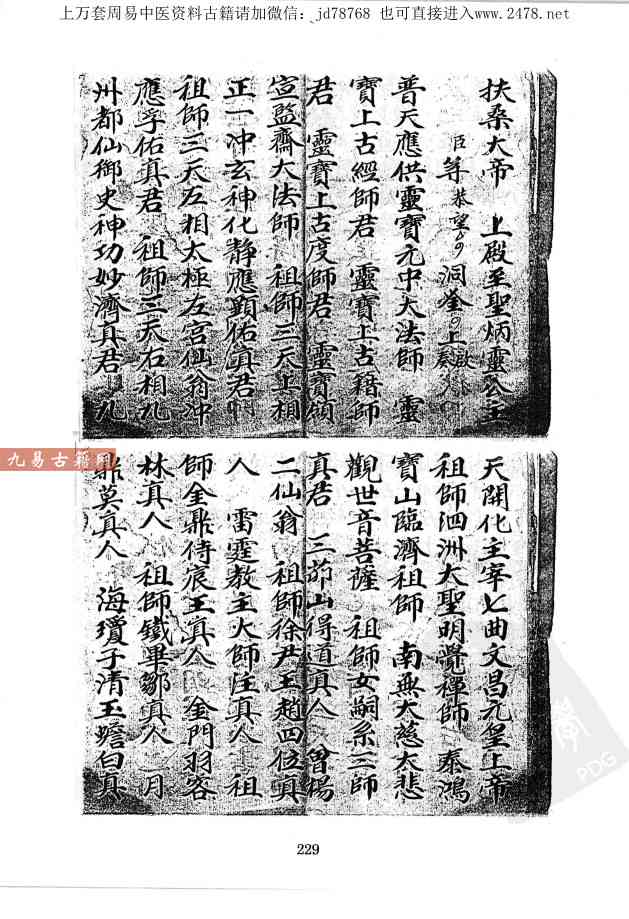 上万套周易中医资料古籍请加微信：jd78768 也可直接进入www.2478.net
扶桑大帝 上殿至聖炳靈公主
臣 尊 恭望 洞鉴 上啟奏
普天應供靈寶元中大法師 靈
寶上古經師君 靈寶上古籍師
君 靈寶上古度師君 靈寶
宣監齋大法師 祖師三天上相
正一冲玄神化靜應顕佑真君
祖師三天左相太極左宫仙翁冲
應孚佑真君 祖師三天右相九
州都仙御史神功妙濟真君 九
天開化主宰七曲文昌元皇上帝
祖師泗洲大聖明覺禪師 泰鴻
寶山臨濟祖師 南無大慈大悲
觀世音菩薩 祖師女嗣系三師
真君 三茆山得道真人 曾楊
二仙翁 祖師徐尹王趙四位真
人 雷霆教主火師汪真人 祖
師金鼎侍宸王真人 金門羽客
林真人 祖師鐵畢鄒真人 月
鼎莫真人 海瓊子清玉蟾白真
九易古籍网
PDG
229